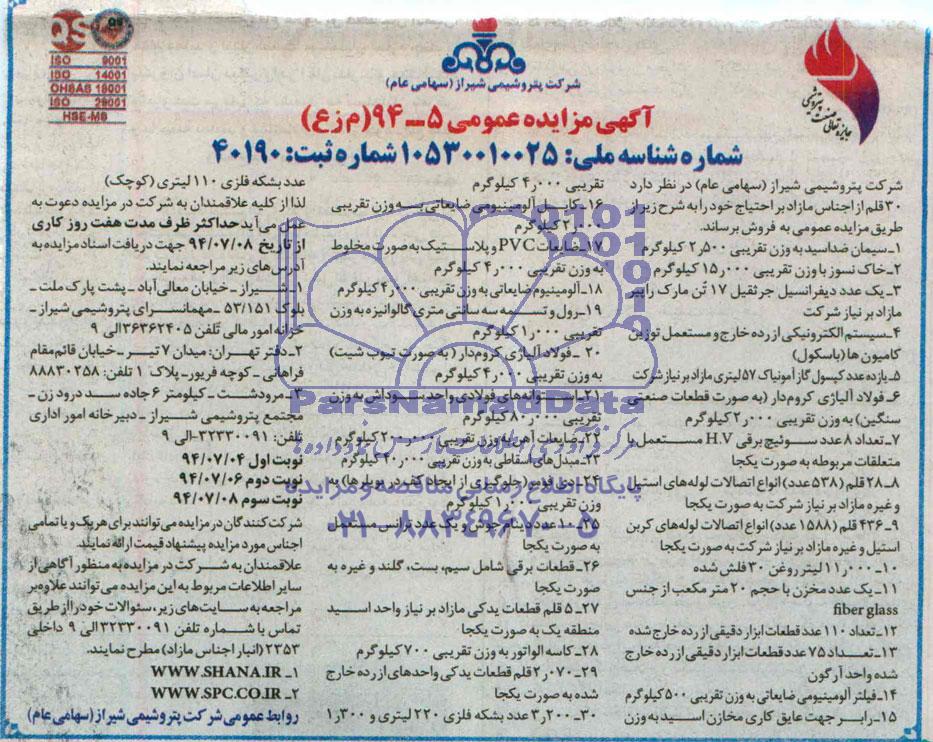 QS
ISO 9001
ISO 14001
OHSAS 18001
ISO 29001
HSE-MS
جایزه تعالی صنعت پتروشیمی
شرکت پتروشیمی شیراز (سهامی عام)
آگهی مزایده عمومی ۵ــ۹۴(م زع)
شماره شناسه ملی: ۱۰۵۳۰۰۱۰۰۲۵ شماره ثبت: ۴۰۱۹۰
شرکت پتروشیمی شیراز (سهامی عام) در نظر دارد
۳۰ قلم از اجناس مازاد بر احتیاج خود را به شرح زیر از
طریق مزایده عمومی به فروش برساند.
۱ـ سیمان ضداسید به وزن تقریبی ۲٫۵۰۰ کیلوگرم
۲ـ خاک نسوز با وزن تقریبی ۱۵٫۰۰۰ کیلوگرم
۳ـ یک عدد دیفرانسیل جرثقیل ۱۷ تُن مارک راپیر
مازاد بر نیاز شرکت
۴ـ سیستم الکترونیکی از رده خارج و مستعمل توزین
کامیون ها (باسکول)
۵ـ یازده عدد کپسول گاز آمونیاک ۵۷ لیتری مازاد بر نیاز شرکت
۶ـ فولاد آلیاژی کروم‌دار (به صورت قطعات صنعتی
سنگین) به وزن تقریبی ۲٫۰۰۰ کیلوگرم
۷ـ تعداد ۸ عدد سوئیچ برقی H.V مستعمل با
متعلقات مربوطه به صورت یکجا
۸ـ ۲۸ قلم (۵۳۸ عدد) انواع اتصالات لوله‌های استیل
و غیره مازاد بر نیاز شرکت به صورت یکجا
۹ـ ۴۳۶ قلم (۱۵۸۸ عدد) انواع اتصالات لوله‌های کربن
استیل و غیره مازاد بر نیاز شرکت به صورت یکجا
۱۰ـ ۱۱٫۰۰۰ لیتر روغن ۳۰ فلش شده
۱۱ـ یک عدد مخزن با حجم ۲۰ متر مکعب از جنس
fiber glass
۱۲ـ تعداد ۱۱۰ عدد قطعات ابزار دقیقی از رده خارج شده
۱۳ـ تعداد ۷۵ عدد قطعات ابزار دقیقی از رده خارج
شده واحد آرگون
۱۴ـ فیلتر آلومینیومی ضایعاتی به وزن تقریبی ۵۰۰ کیلوگرم
۱۵ـ رابر جهت عایق کاری مخازن اسید به وزن
تقریبی ۴٫۰۰۰ کیلوگرم
۱۶ـ کابل آلومینیومی ضایعاتی به وزن تقریبی
۲٫۰۰۰ کیلوگرم
۱۷ـ ضایعات PVC و پلاستیک به صورت مخلوط
به وزن تقریبی ۴٫۰۰۰ کیلوگرم
۱۸ـ آلومینیوم ضایعاتی به وزن تقریبی ۴٫۰۰۰ کیلوگرم
۱۹ـ رول و تسمه سه سانتی متری گالوانیزه به وزن
تقریبی ۱٫۰۰۰ کیلوگرم
۲۰ـ فولاد آلیاژی کروم‌دار (به صورت تیوب شیت)
به وزن تقریبی ۴٫۰۰۰ کیلوگرم
۲۱ـ استوانه‌های فولادی واحد سوداش به وزن
تقریبی ۸۰٫۰۰۰ کیلوگرم
۲۲ـ ضایعات آهن به وزن تقریبی ۲۰۰٫۰۰۰ کیلوگرم
۲۳ـ مبدل‌های اسقاطی به وزن تقریبی ۲۰٫۰۰۰ کیلوگرم
۲۴ـ دی فومر (جلوگیری از ایجاد کف در بویلرها) به
وزن تقریبی ۱٫۰۰۰ کیلوگرم
۲۵ـ ۱۰ عدد دینام جوش و یک عدد ترانس مستعمل
به صورت یکجا
۲۶ـ قطعات برقی شامل سیم، بست، گلند و غیره به
صورت یکجا
۲۷ـ ۵ قلم قطعات یدکی مازاد بر نیاز واحد اسید
منطقه یک به صورت یکجا
۲۸ـ کاسه الواتور به وزن تقریبی ۷۰۰ کیلوگرم
۲۹ـ ۲٫۰۷۰ قلم قطعات یدکی واحدهای از رده خارج
شده به صورت یکجا
۳۰ـ ۳٫۲۰۰ عدد بشکه فلزی ۲۲۰ لیتری و ۱٫۳۰۰
عدد بشکه فلزی ۱۱۰ لیتری (کوچک)
لذا از کلیه علاقمندان به شرکت در مزایده دعوت به
عمل می آید حداکثر ظرف مدت هفت روز کاری
از تاریخ ۹۴/۰۷/۰۸ جهت دریافت اسناد مزایده به
آدرس‌های زیر مراجعه نمایند.
۱ـ شیراز ـ خیابان معالی آباد ـ پشت پارک ملت ـ
بلوک ۵۳/۱۵۱ ـ مهمانسرای پتروشیمی شیراز ـ
خوابه امور مالی تلفن ۳۶۳۶۲۴۰۵ الی ۹
۲ـ دفتر تهران: میدان ۷ تیر ـ خیابان قائم مقام
فراهانی ـ کوچه فریور ـ پلاک ۱ تلفن: ۸۸۸۳۰۲۵۸
۳ـ مرودشت ـ کیلومتر ۶ جاده سد درود زن ـ
مجتمع پتروشیمی شیراز ـ دبیرخانه امور اداری
تلفن: ۳۲۳۳۰۰۹۱ـ الی ۹
نوبت اول ۹۴/۰۷/۰۴
نوبت دوم ۹۴/۰۷/۰۶
نوبت سوم ۹۴/۰۷/۰۸
شرکت کنندگان در مزایده می‌توانند برای هر یک و یا تمامی
اجناس مورد مزایده پیشنهاد قیمت ارائه نمایند
علاقمندان به شرکت در مزایده به منظور آگاهی از
سایر اطلاعات مربوط به این مزایده می توانند علاوه بر
مراجعه به سایت‌های زیر، سئوالات خود را از طریق
تماس با شماره تلفن ۳۲۳۳۰۰۹۱ الی ۹ داخلی
۲۳۵۳ (انبار اجناس مازاد) مطرح نمایند.
۱ـ WWW.SHANA.IR
۲ـ WWW.SPC.CO.IR
روابط عمومی شرکت پتروشیمی شیراز (سهامی عام)
ParsNamadData
پایگاه اطلاع رسانی مناقصه و مزایده
۰۲۱-۸۸۳۴۹۶۷۰-۵